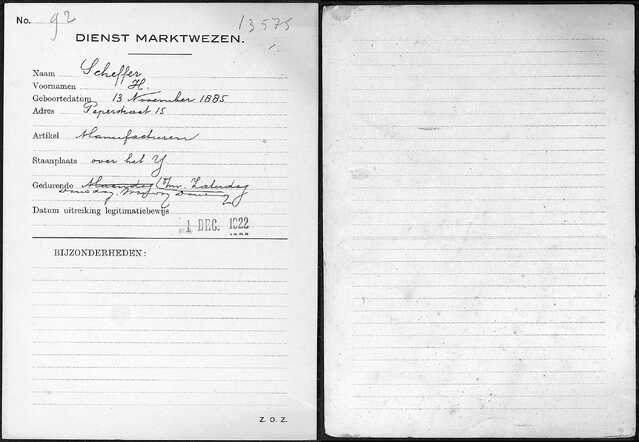 No. 92 13575
DIENST MARKTWEZEN.
Naam Scheffer
Voornamen H.
Geboortedatum 13 November 1885
Adres Peperstraat 15
Artikel Manufacturen
Staanplaats over het Y
Gedurende Maandag t/m. Zaterdag
Dinsdag,
Datum uitreiking legitimatiebewijs
1 DEC. 1922
BIJZONDERHEDEN:
Z. O. Z.